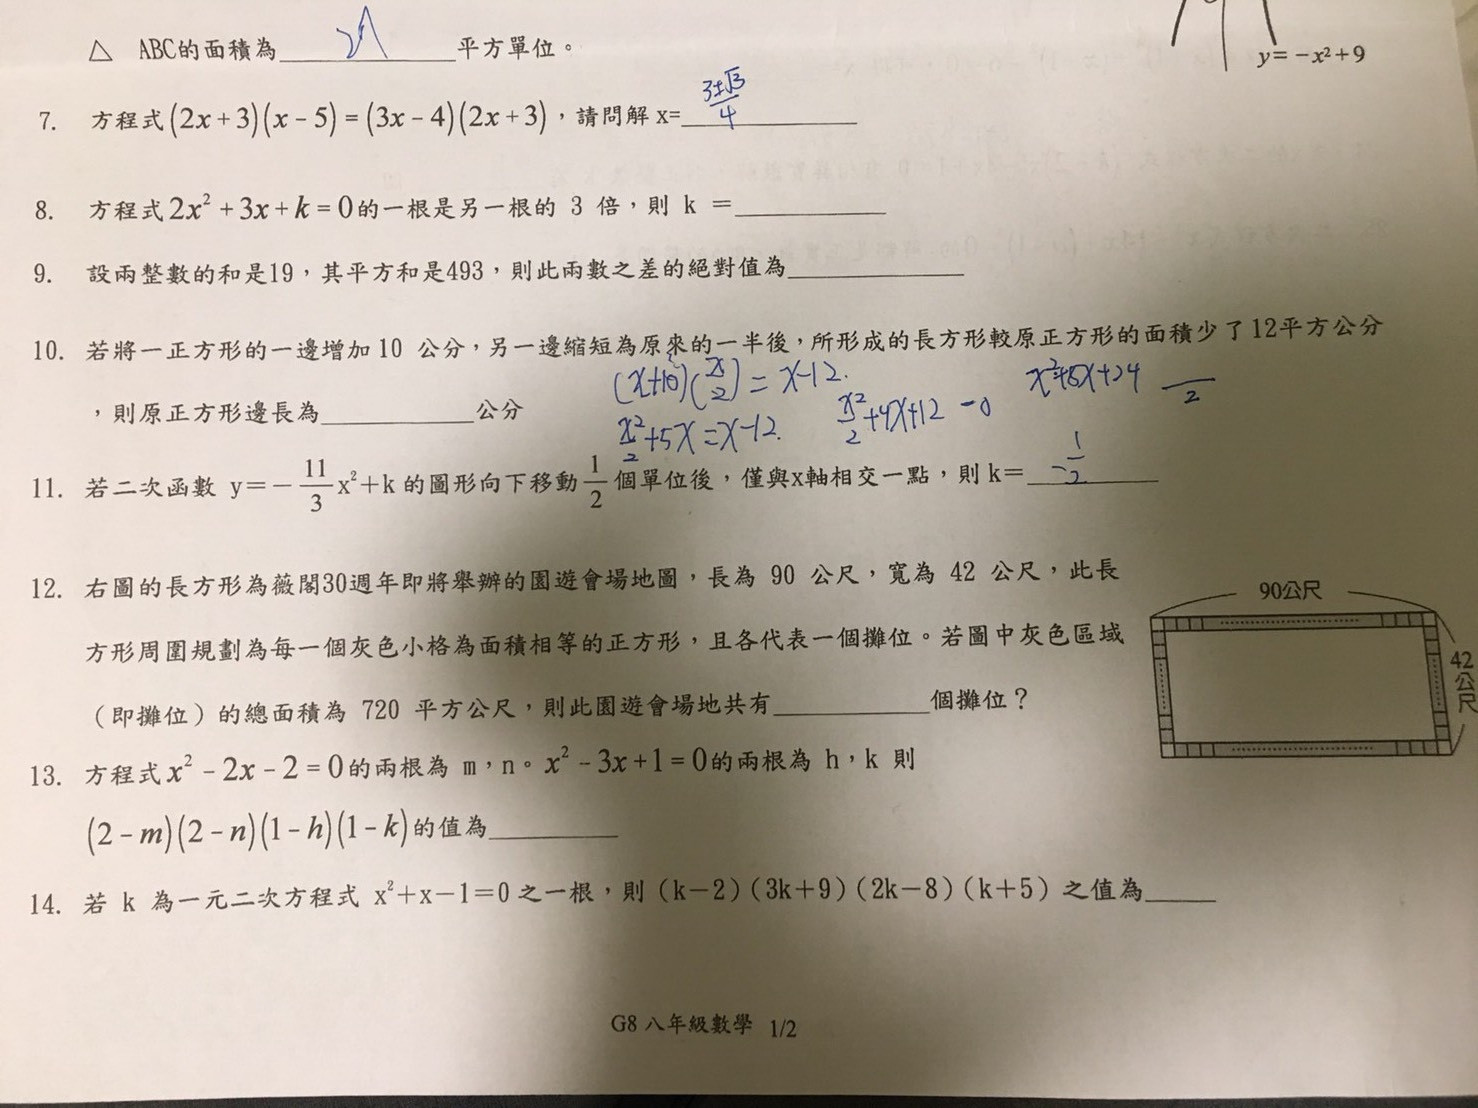 △ ABC的面積為 平方單位。
y=-x²+9
7. 方程式(2x+3)(x-5)=(3x-4)(2x+3),請問解 x= (3±√3)/4
8. 方程式2x²+3x+k=0的一根是另一根的 3 倍,則 k =
9. 設兩整數的和是19,其平方和是493,則此兩數之差的絕對值為
10. 若將一正方形的一邊增加 10 公分,另一邊縮短為原來的一半後,所形成的長方形較原正方形的面積少了12平方公分
(x+10)(x/2)=x-12.
,則原正方形邊長為 公分
x²/2+5x=x-12. x²/2+4x+12 =0
11. 若二次函數 y=-11/3x²+k 的圖形向下移動1/2個單位後,僅與x軸相交一點,則 k= -1/2
12. 右圖的長方形為薇閣30週年即將舉辦的園遊會場地圖,長為 90 公尺,寬為 42 公尺,此長
方形周圍規劃為每一個灰色小格為面積相等的正方形,且各代表一個攤位。若圖中灰色區域
(即攤位)的總面積為 720 平方公尺,則此園遊會場地共有 個攤位?
90公尺
42公尺
13. 方程式x²-2x-2=0的兩根為 m,n。x²-3x+1=0的兩根為 h,k 則
(2-m)(2-n)(1-h)(1-k)的值為
14. 若 k 為一元二次方程式 x²+x-1=0 之一根,則 (k-2)(3k+9)(2k-8)(k+5) 之值為
G8 八年級數學 1/2